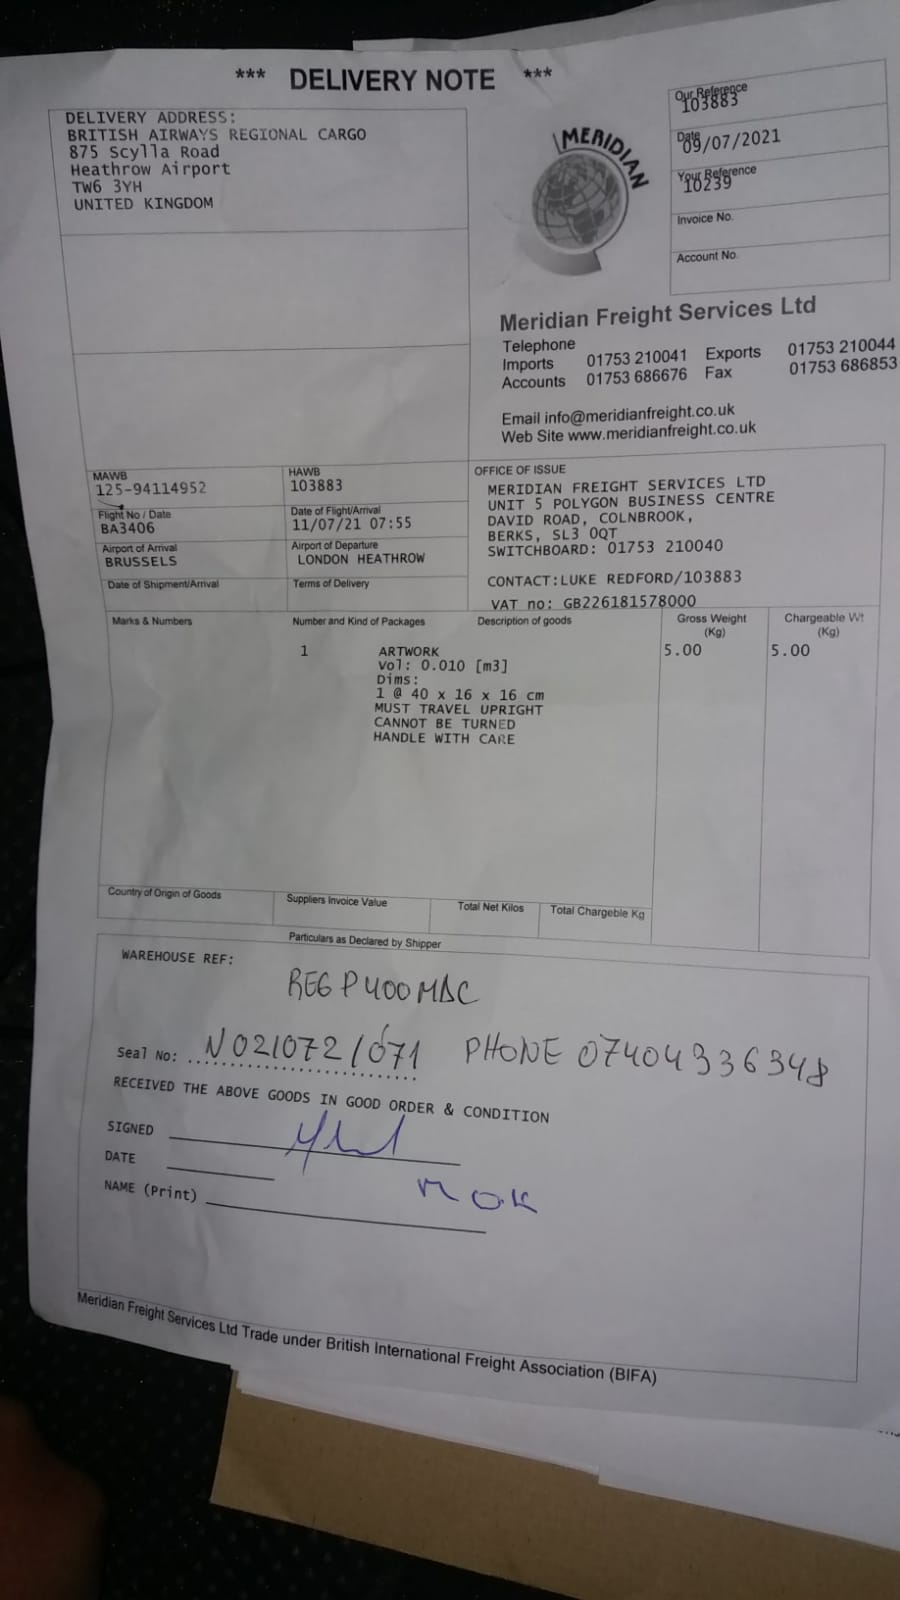 *** DELIVERY NOTE ***
DELIVERY ADDRESS:
BRITISH AIRWAYS REGIONAL CARGO
875 Scylla Road
Heathrow Airport
TW6 3YH
UNITED KINGDOM
MERIDIAN
Our Reference
103883
Date
09/07/2021
Your Reference
10239
Invoice No.
Account No.
Meridian Freight Services Ltd
Telephone
Imports 01753 210041 Exports 01753 210044
Accounts 01753 686676 Fax 01753 686853
Email info@meridianfreight.co.uk
Web Site www.meridianfreight.co.uk
MAWB
125-94114952
HAWB
103883
Flight No / Date
BA3406
Date of Flight/Arrival
11/07/21 07:55
Airport of Arrival
BRUSSELS
Airport of Departure
LONDON HEATHROW
Date of Shipment/Arrival
Terms of Delivery
OFFICE OF ISSUE
MERIDIAN FREIGHT SERVICES LTD
UNIT 5 POLYGON BUSINESS CENTRE
DAVID ROAD, COLNBROOK,
BERKS, SL3 0QT
SWITCHBOARD: 01753 210040
CONTACT:LUKE REDFORD/103883
VAT no: GB226181578000
Marks & Numbers Number and Kind of Packages Description of goods Gross Weight (Kg) Chargeable Wt (Kg)
1 ARTWORK 5.00 5.00
Vol: 0.010 [m3]
Dims:
1 @ 40 x 16 x 16 cm
MUST TRAVEL UPRIGHT
CANNOT BE TURNED
HANDLE WITH CARE
Country of Origin of Goods Suppliers Invoice Value Total Net Kilos Total Chargeble Kg
Particulars as Declared by Shipper
WAREHOUSE REF:
REG P400MDC
Seal No: N021072/071 PHONE 07404336348
RECEIVED THE ABOVE GOODS IN GOOD ORDER & CONDITION
SIGNED
DATE
NAME (Print)
Meridian Freight Services Ltd Trade under British International Freight Association (BIFA)